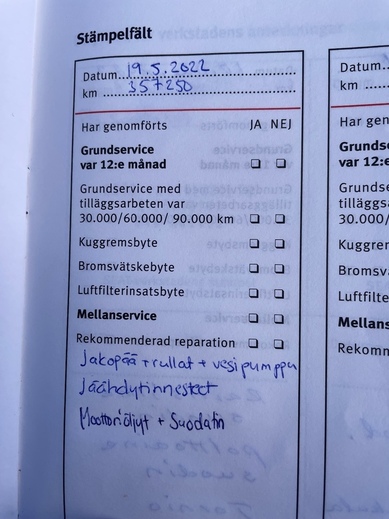 Stämpelfält
Datum 19.5.2022
km 357250
Har genomförts JA NEJ
Grundservice
var 12:e månad
Grundservice med
tilläggsarbeten var
30.000/60.000/ 90.000 km
Kuggremsbyte
Bromsvätskebyte
Luftfilterinsatsbyte
Mellanservice
Rekommenderad reparation
Jakopää + rullat + vesipumppu
Jäähdytinnesteet
Moottoriöljyt + Suodatin
Datum
km
Har gen
Grundse
var 12:e
Grundse
tilläggs
30.000/
Kuggrer
Bromsva
Luftfilte
Mellans
Rekomn